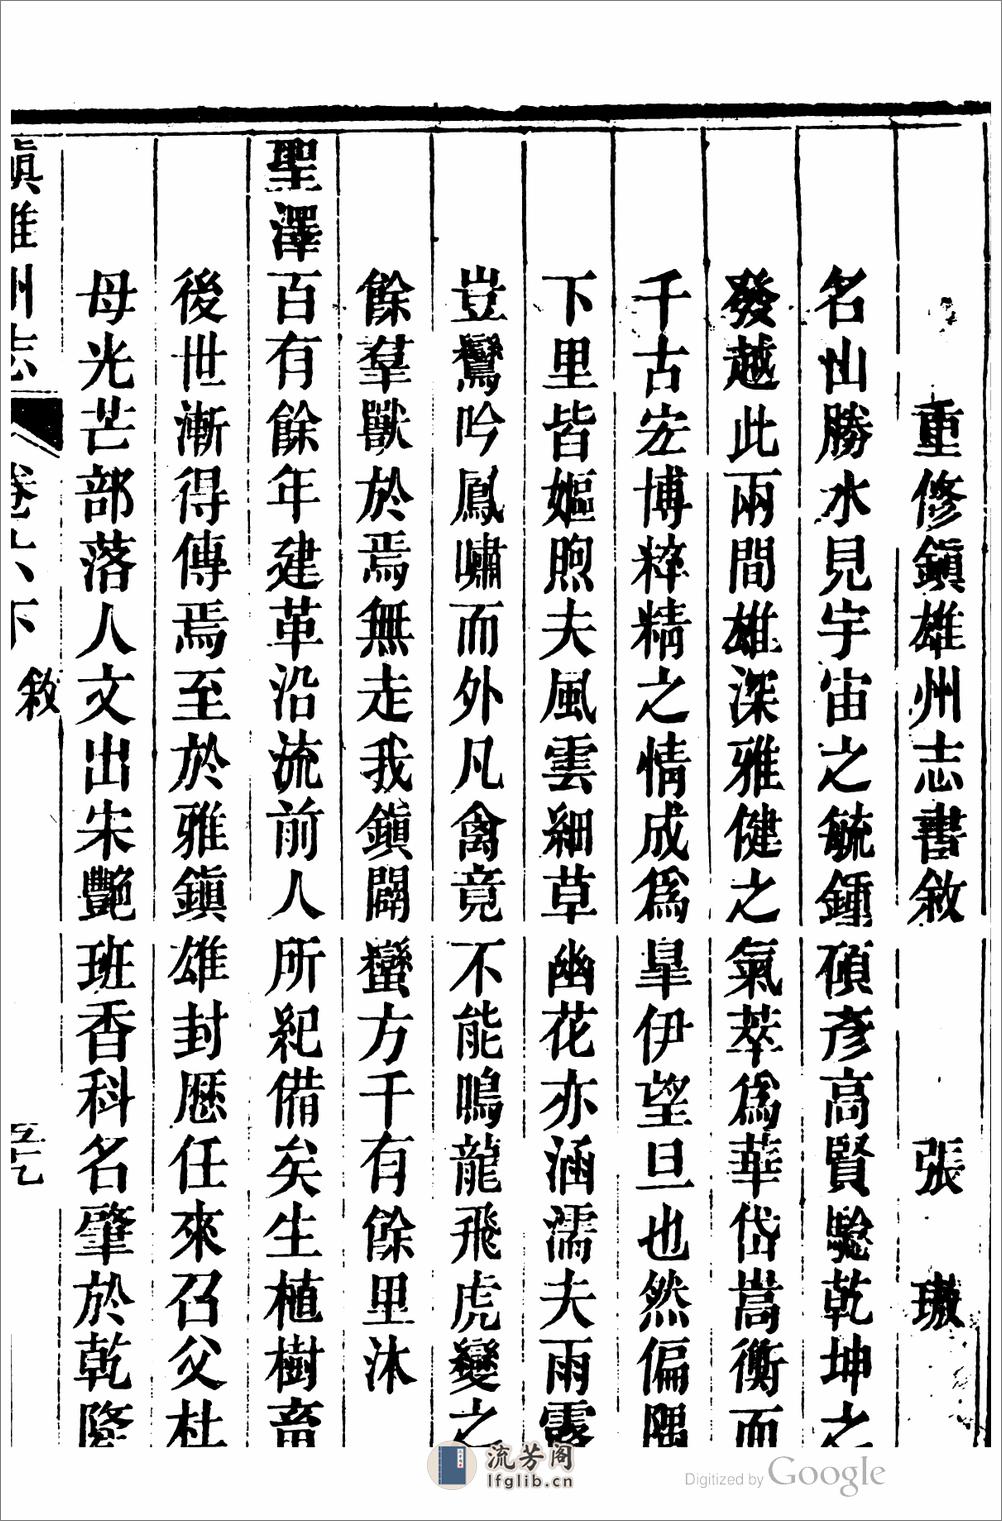 重修鎮雄州志書敘 張璈
名山勝水見宇宙之毓鍾碩彥高賢驗乾坤之
發越此兩間雄深雅健之氣萃為華岱嵩衡而
千古宏博粹精之情成為皐伊望旦也然偏隅
下里皆嫗煦夫風雲細草幽花亦涵濡夫雨露
豈鸞吟鳳嘯而外凡禽竟不能鳴龍飛虎變之
餘羣獸於焉無走我鎮闢蠻方千有餘里沐
聖澤百有餘年建革沿流前人所紀備矣生植樹畜
後世漸得傳焉至於雅鎮雄封歷任來召父杜
母光芒部落人文出宋艷班香科名肇於乾隆
鎮雄州志 卷六下 敘
流芳阁
lfglib.cn
Digitized by Google